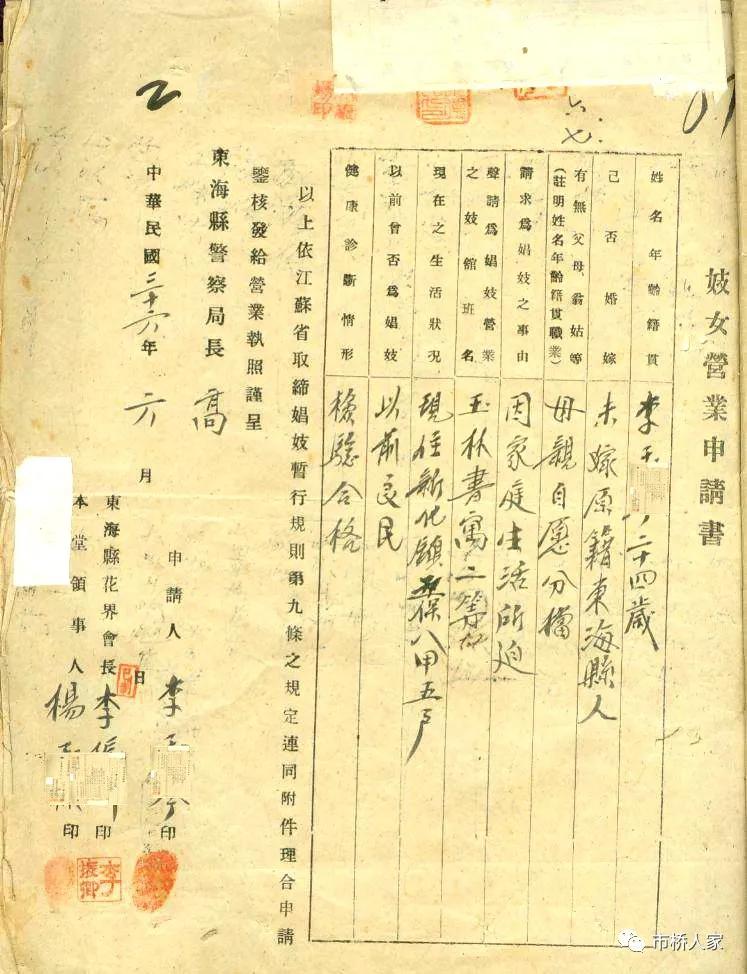 妓女營業申請書
姓名年齡籍貫
李玉
二十四歲
已否婚嫁
未嫁原籍東海縣人
有無父母翁姑等
(註明姓名年齡籍貫職業)
母親自愿分檔
請求為娼妓之事由
因家庭生活所迫
聲請為娼妓營業
之妓館班名
玉林書寓二等
現在之生活狀况
現住新化鎮 保八甲五戶
以前曾否為娼妓
以前良民
健康診斷情形
檢驗合格
以上依江蘇省取締娼妓暫行規則第九條之規定連同附件理合申請
鑒核發給營業執照謹呈
東海縣警察局長 高
申請人 李 印
東海縣花界會長 李振 印
本堂領事人 楊 印
中華民國三十六年 六 月 日
六七
李振卿
市桥人家